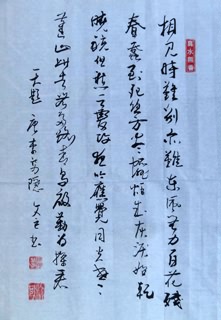 相见时难别亦难东风无力百花残
春蚕到死丝方尽蜡炬成灰泪始干
晓镜但愁云鬓改夜吟应觉月光寒
蓬山此去无多路青鸟殷勤为探看
无题 唐李商隐